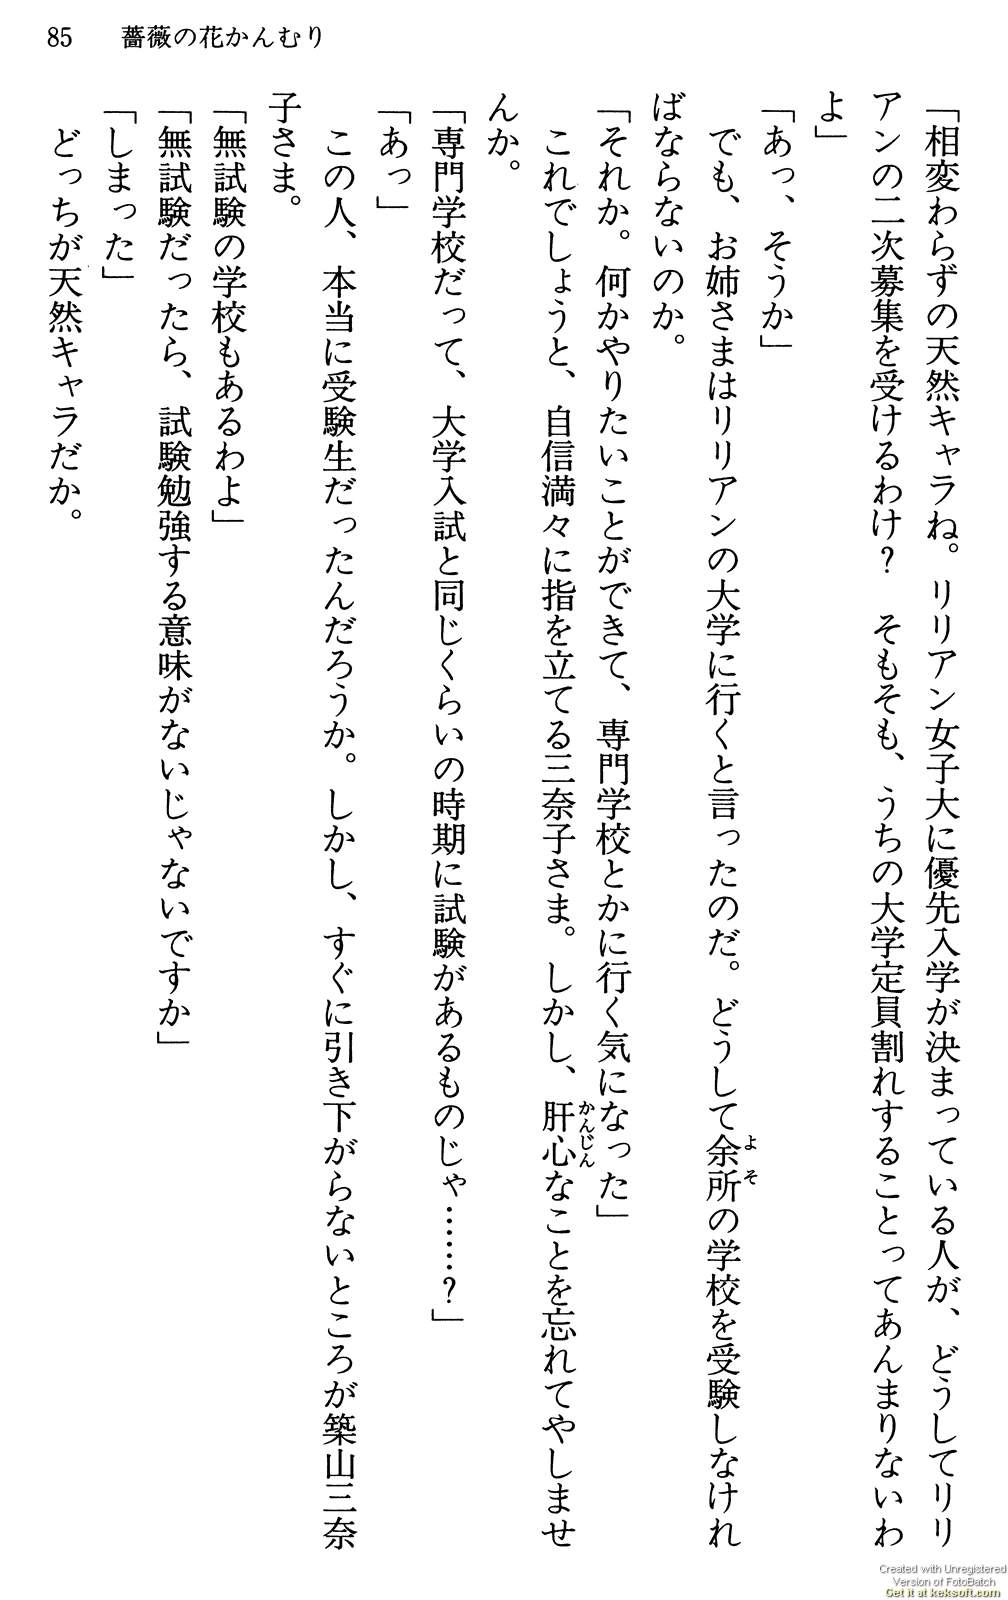 85 薔薇の花かんむり
「相変わらずの天然キャラね。リリアン女子大に優先入学が決まっている人が、どうしてリリ
アンの二次募集を受けるわけ? そもそも、うちの大学定員割れすることってあんまりないわ
よ」
「あっ、そうか」
でも、お姉さまはリリアンの大学に行くと言ったのだ。どうして余所の学校を受験しなけれ
よそ
ばならないのか。
「それか。何かやりたいことができて、専門学校とかに行く気になった」
これでしょうと、自信満々に指を立てる三奈子さま。しかし、肝心なことを忘れてやしませ
かんじん
んか。
「専門学校だって、大学入試と同じくらいの時期に試験があるものじゃ……?」
「あっ」
この人、本当に受験生だったんだろうか。しかし、すぐに引き下がらないところが築山三奈
子さま。
「無試験の学校もあるわよ」
「無試験だったら、試験勉強する意味がないじゃないですか」
「しまった」
どっちが天然キャラだか。
Created with Unregistered
Version of FotoBatch
Get it at keksoft.com